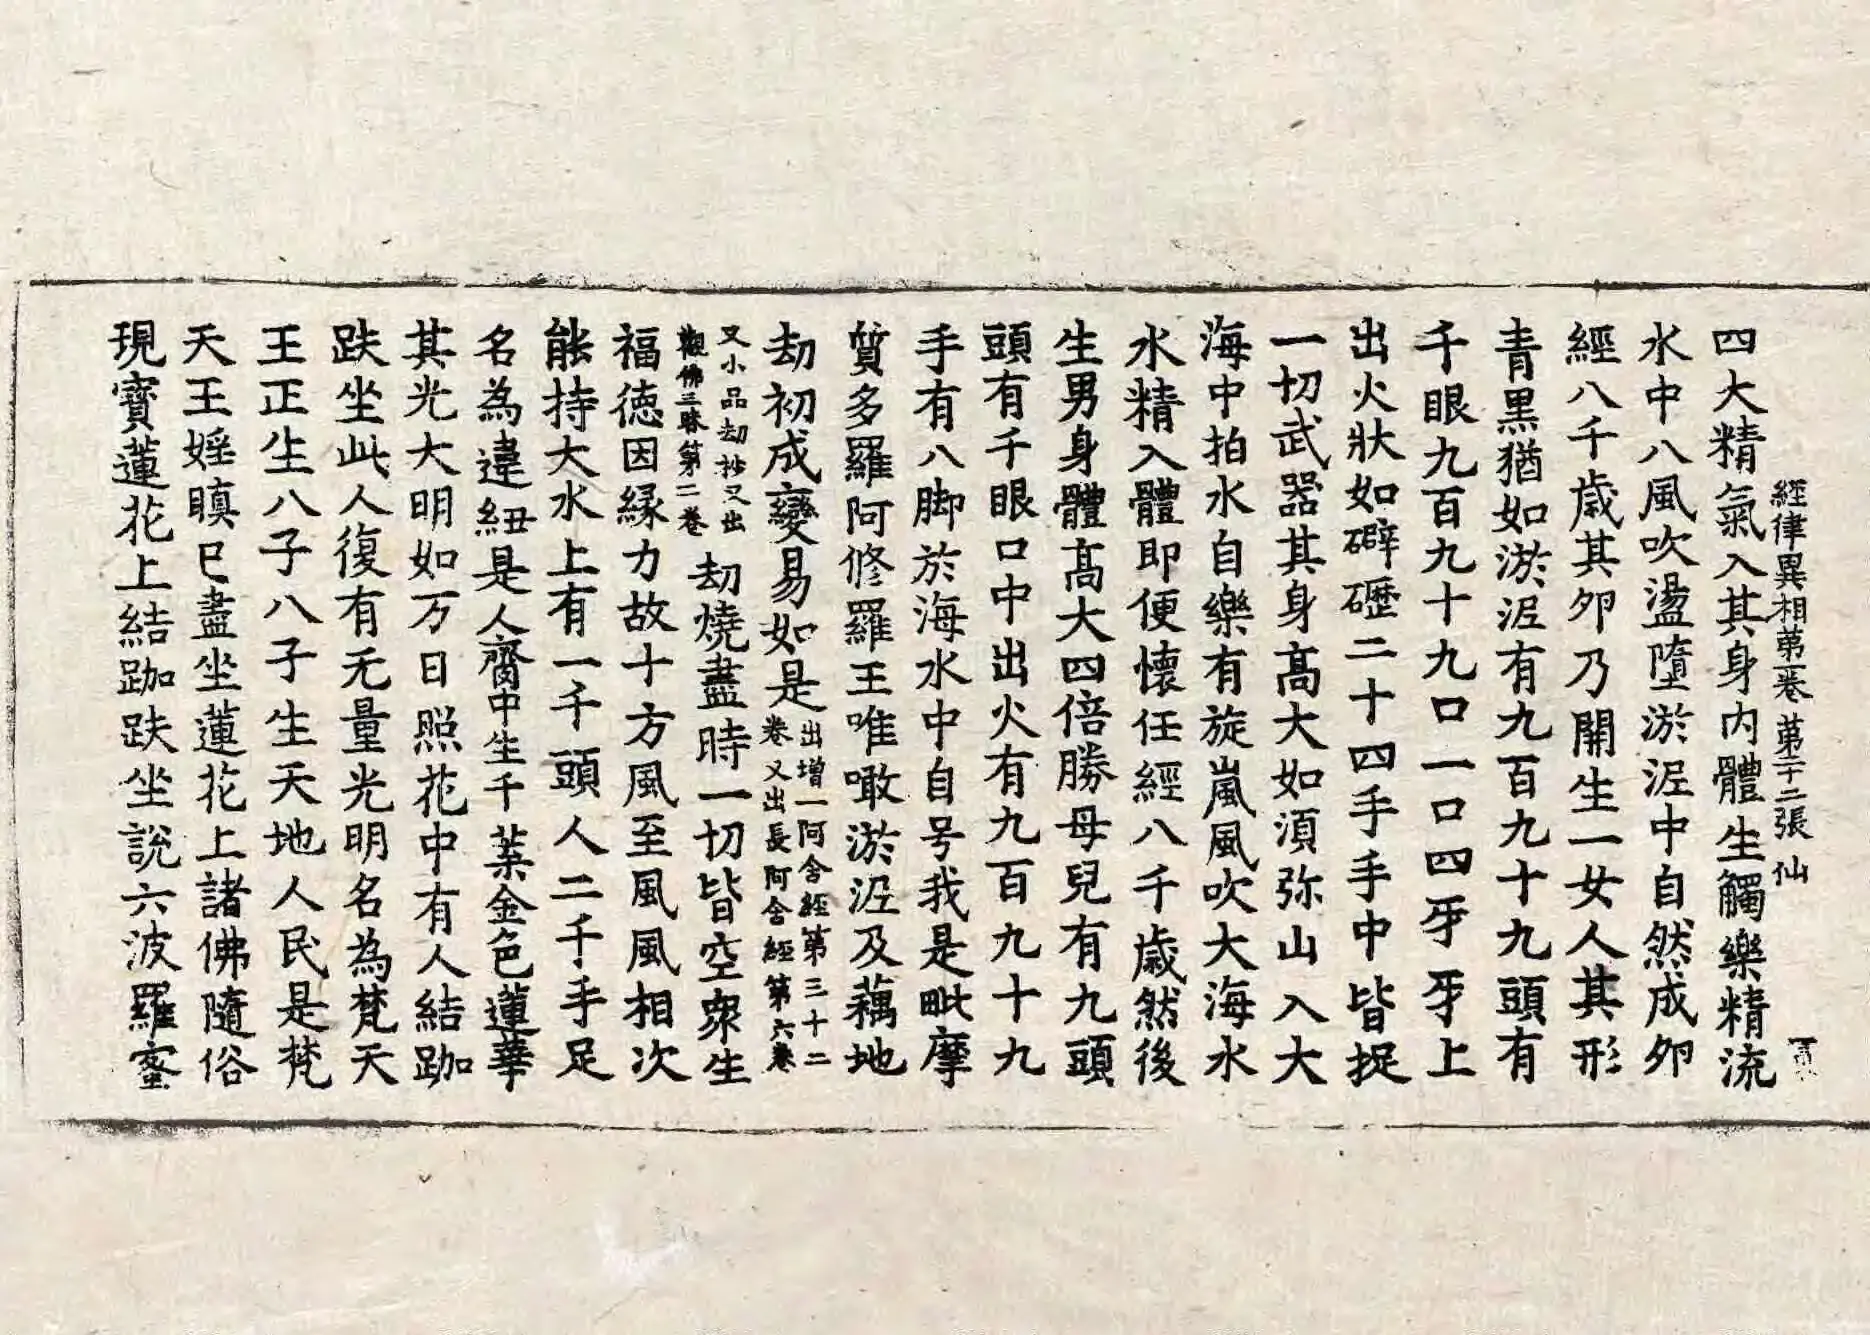 經律異相第一卷 第二十二張 仙
四大精氣入其身內體生觸樂精流
水中八風吹盪墮淤泥中自然成卵
經八千歲其卵乃開生一女人其形
青黑猶如淤泥有九百九十九頭有
千眼九百九十九口一口四牙牙上
出火狀如礔礰二十四手手中皆捉
一切武器其身高大如須弥山入大
海中拍水自樂有旋嵐風吹大海水
水精入體即便懷任經八千歲然後
生男身體高大四倍勝母兒有九頭
頭有千眼口中出火有九百九十九
手有八脚於海水中自号我是毗摩
質多羅阿修羅王唯噉淤泥及藕地
劫初成變易如是出增一阿含經第三十二
卷又出長阿含經第六卷
又小品劫抄又出
觀佛三昧第二卷
劫燒盡時一切皆空眾生
福德因緣力故十方風至風風相次
能持大水上有一千頭人二千手足
名為違紐是人齎中生千葉金色蓮華
其光大明如万日照花中有人結跏
趺坐此人復有无量光明名為梵天
王正生八子八子生天地人民是梵
天王婬瞋已盡坐蓮花上諸佛隨俗
現寶蓮花上結跏趺坐說六波羅蜜